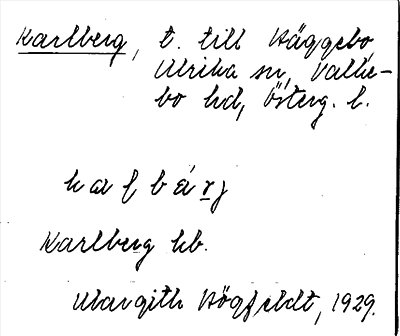 Karlberg, t. till Häggebo,
Ulrika sn, Valke-
bo hd, Österg. l.
Karlberg hb.
Margith Högfeldt, 1929.